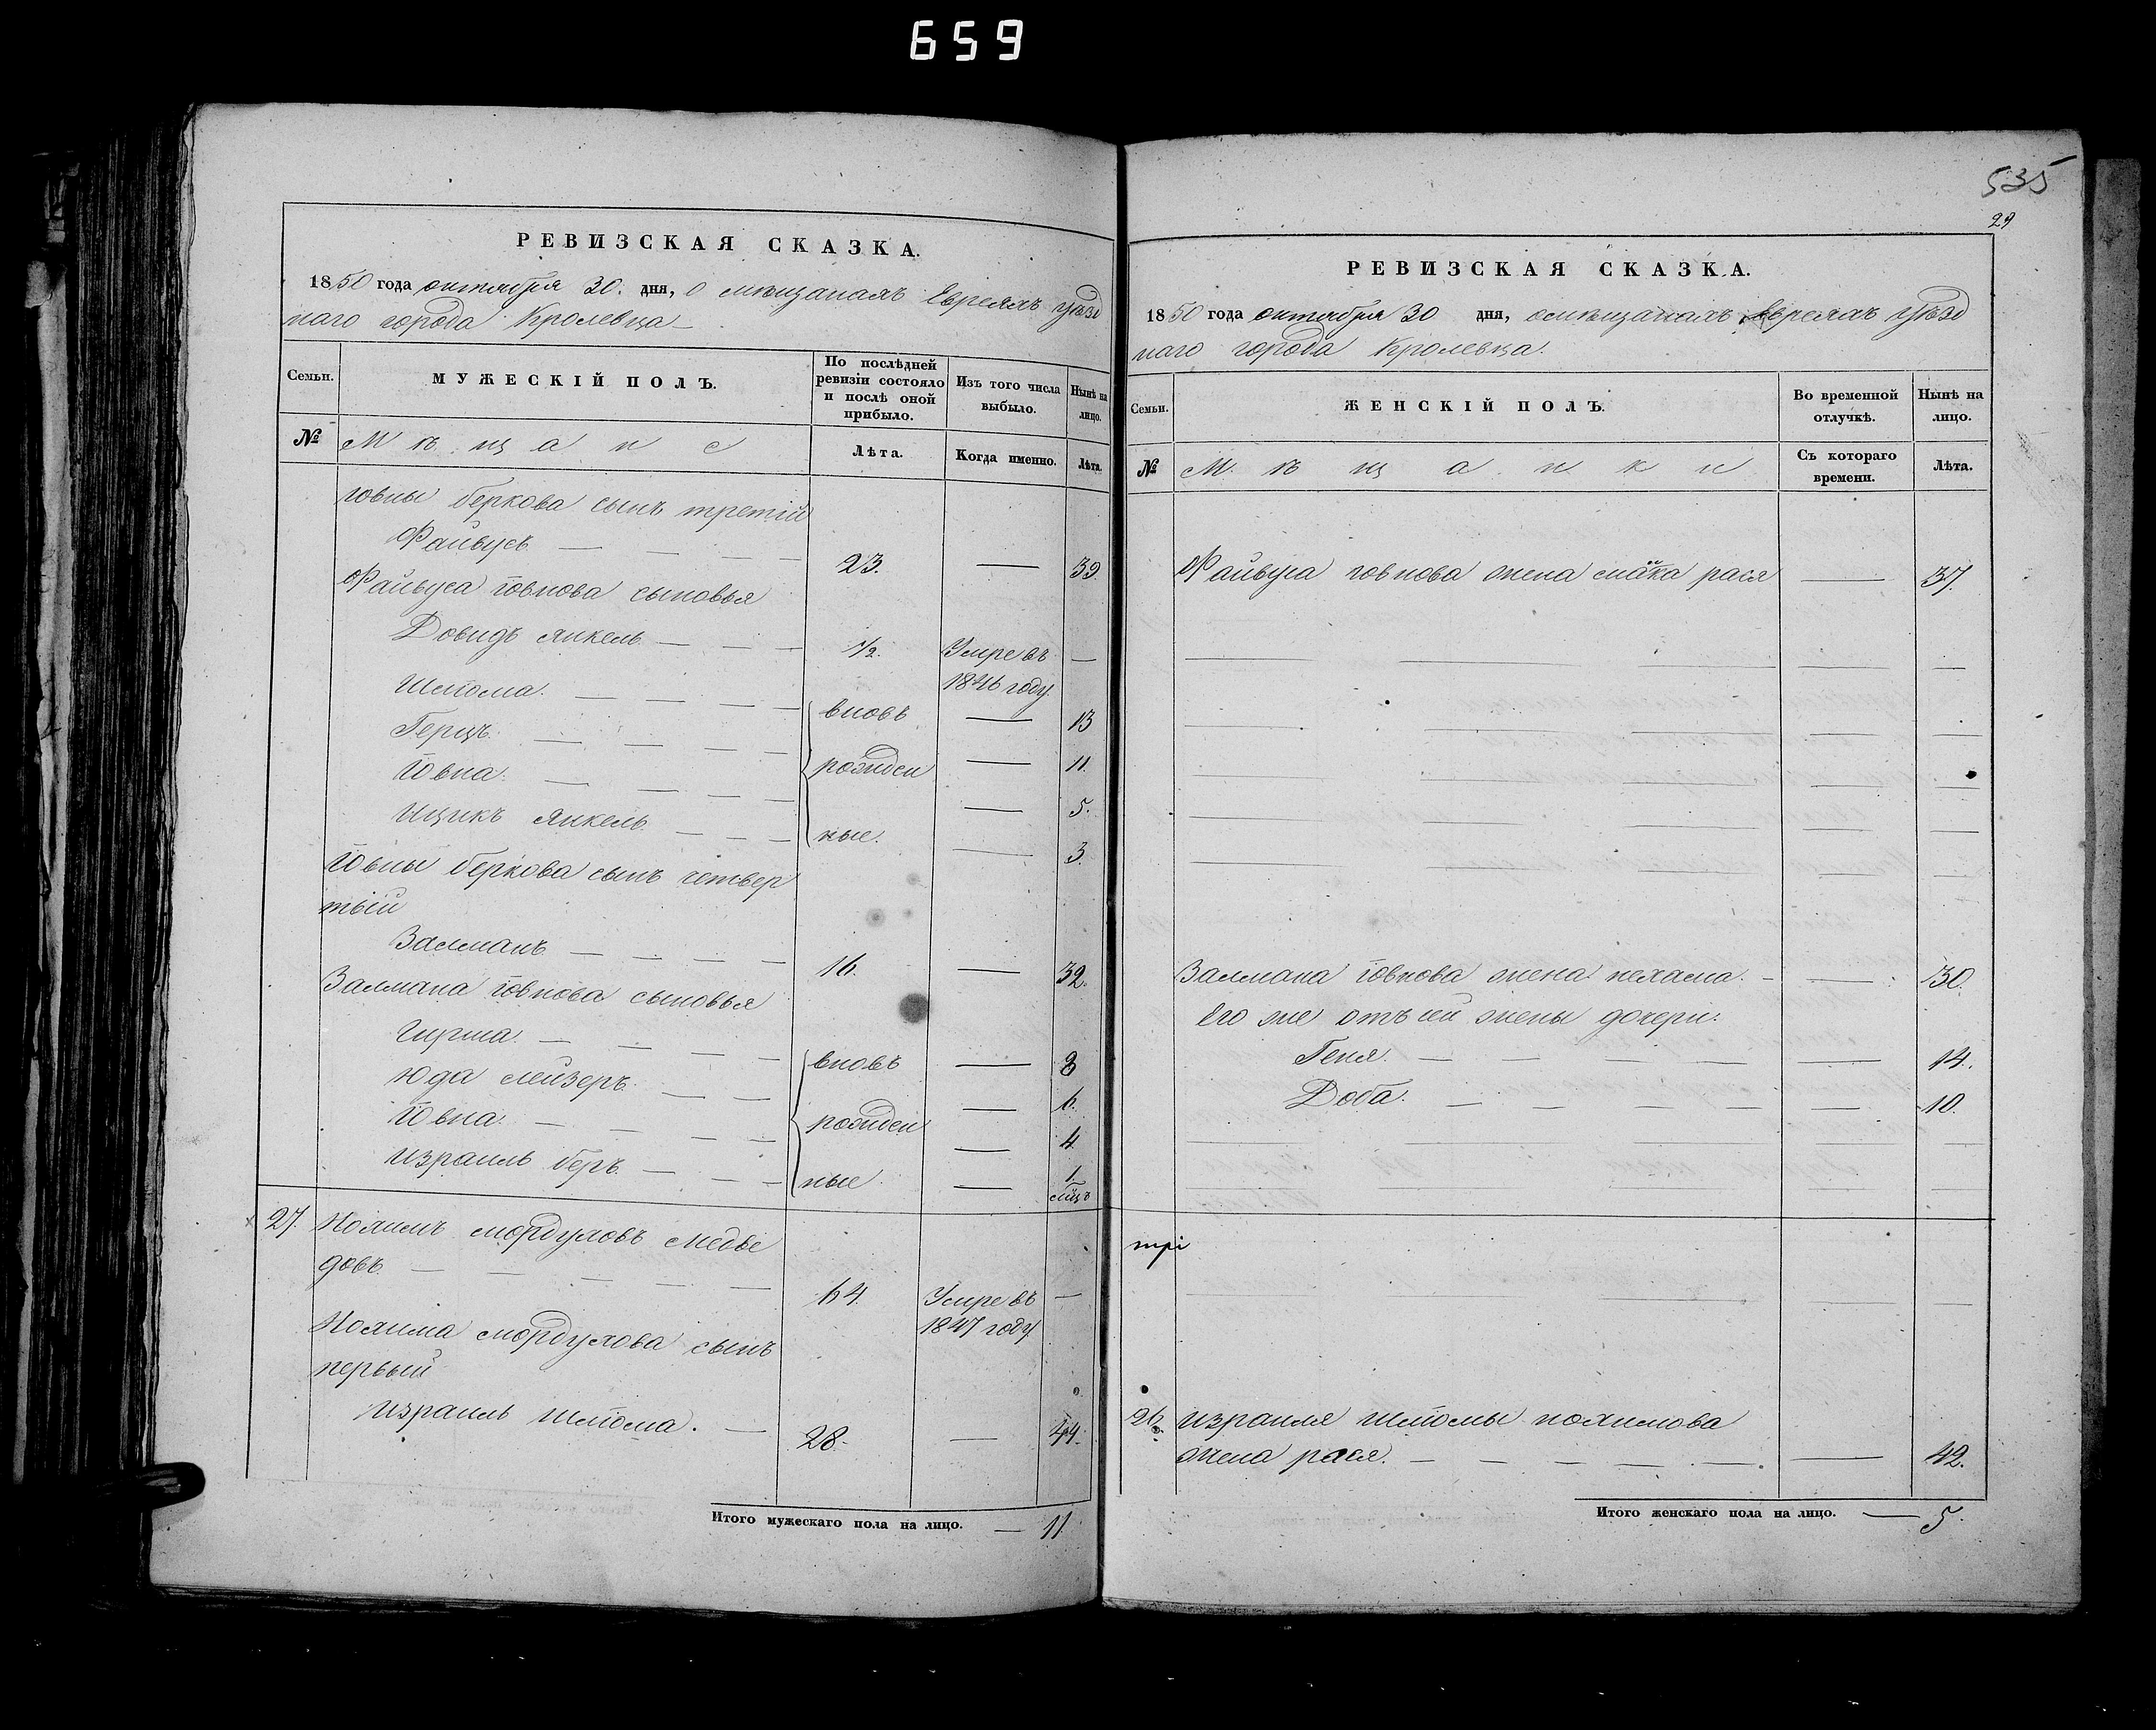 659
РЕВИЗСКАЯ СКАЗКА.
1850 года октября 30. дня, о мѣщанахъ Евреяхъ уѣзд
наго города Кролевца
Семьи.
МУЖЕСКІЙ ПОЛЪ.
По послѣдней ревизіи состояло и послѣ оной прибыло.
Изъ того числа выбыло.
Нынѣ на лицо.
№
Мѣщане
Лѣта.
Когда именно.
Лѣта.
Іовны беркова сынъ третій
Файвусъ 23. — 39.
Файвуса Іовнова сыновья
Довидъ Янкель 1/2. Умре въ —
1846 году.
Шліома. вновь — 13
Герцъ. рожден — 11.
Іовна. — 5.
Ицикъ Янкель ные. — 3.
Іовны беркова сынъ четвер
тый
Залманъ 16. — 32.
Залмана Іовнова сыновья
Гирша. вновь — 8
Юда лейзеръ. — 6.
Іовна. рожден — 4.
Израиль беръ. ные. — 1.
мцъ
27. Нохимъ мордуховъ медве
довъ 64. Умре въ —
1847 году
Нохима мордухова сынъ
первый
Израиль Шліома. 28. — 44.
Итого мужескаго пола на лицо. — 11.
535
29
РЕВИЗСКАЯ СКАЗКА.
1850 года октября 30 дня, о мѣщанахъ Евреяхъ уѣзд
наго города Кролевца.
Семьи.
ЖЕНСКІЙ ПОЛЪ.
Во временной отлучкѣ.
Нынѣ на лицо.
№
Мѣщанки
Съ котораго времени.
Лѣта.
Файвуса Іовнова жена рася — 37.
Залмана Іовнова жена нехама. — 30.
Его же отъ сей жены дочери:
Геня. — 14.
Доба. — 10.
Израиля Шлиомы нохимова
жена рася. — 42.
Итого женскаго пола на лицо. — 5.